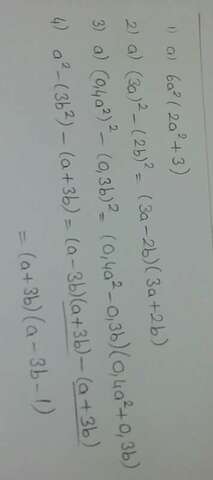 1) a) 6a² (2a² + 3)
2) a) (3a)² - (2b)² = (3a - 2b)(3a + 2b)
3) a) (0,4a²)² - (0,3b)² = (0,4a² - 0,3b)(0,4a² + 0,3b)
4) a² - (3b²) - (a + 3b) = (a - 3b)(a + 3b) - (a + 3b)
= (a + 3b)(a - 3b - 1)